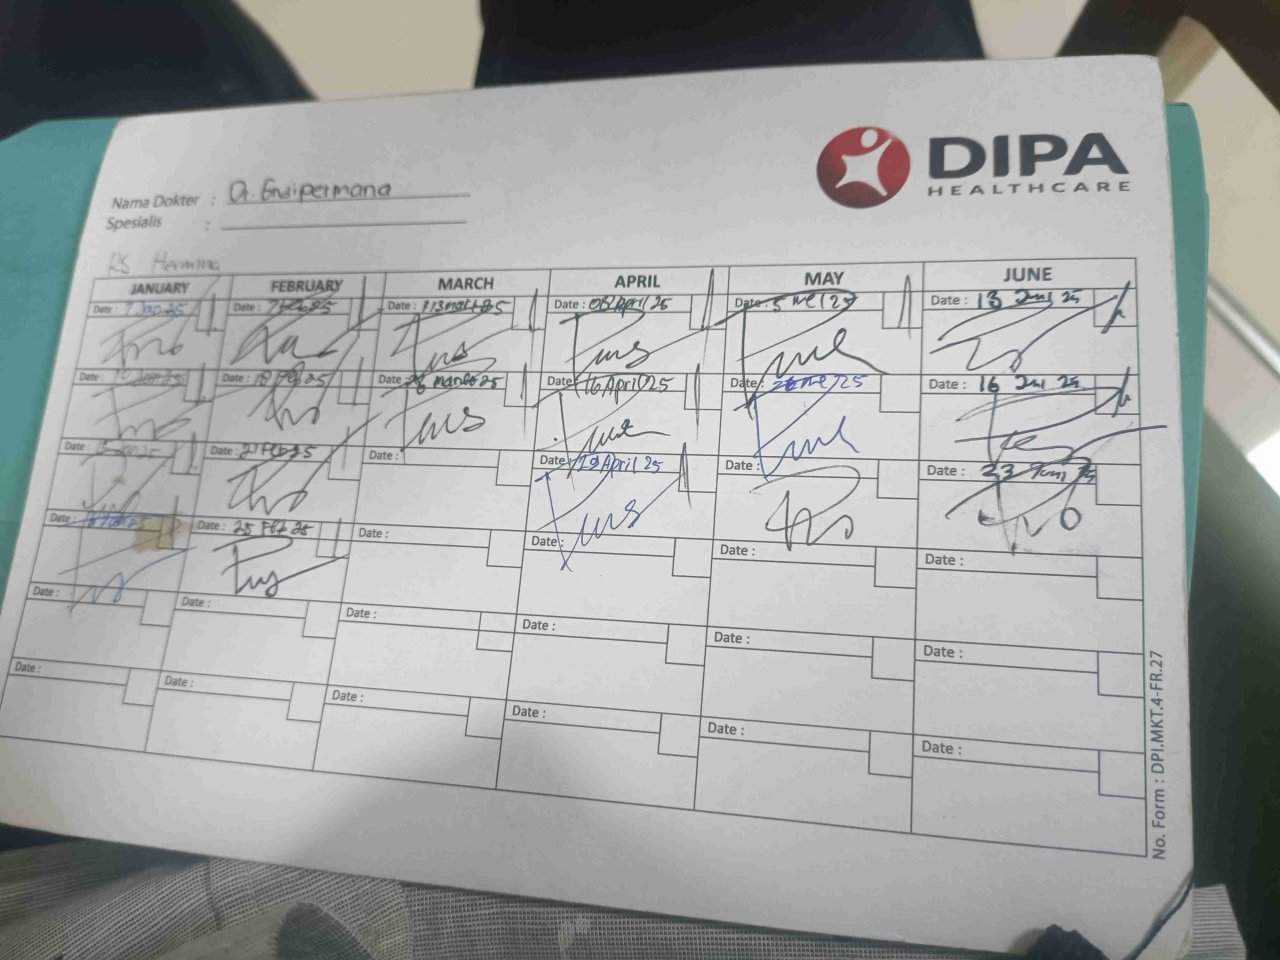 DIPA
HEALTHCARE
Nama Dokter : Dr. Endipermana
Spesialis :
RS Hermina
JANUARY FEBRUARY MARCH APRIL MAY JUNE
Date : 7 Jan 25 Date : 7 Feb 25 Date : 13 maret 25 Date : 08 April 25 Date : 5 mei 25 Date : 13 Juni 25
Date : Jan 25 Date : 18 Feb 25 Date : maret 25 Date : 16 April 25 Date : mei 25 Date : 16 Juni 25
Date : Date : 21 Feb 25 Date : Date : 19 April 25 Date : Date : 23 Juni 25
Date : Date : 25 Feb 25 Date : Date : Date : Date :
Date : Date : Date : Date : Date : Date :
Date : Date : Date : Date : Date : Date :
No. Form : DPI.MKT.4-FR.27